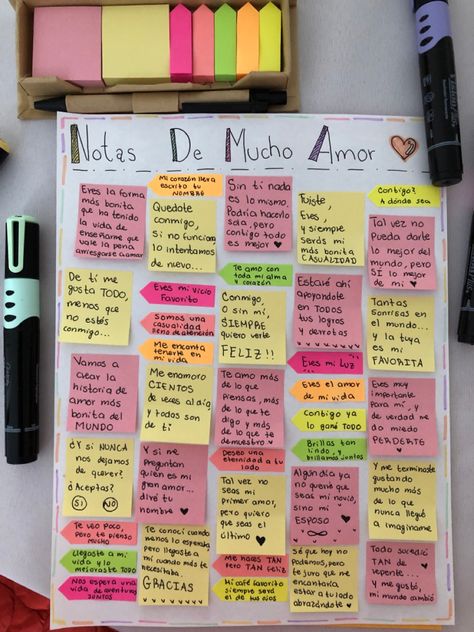 Notas De Mucho Amor
Eres la forma
más bonita
que ha tenido
la vida de
enseñarme que
vale la pena
arriesgarse a amar
Mi corazón lleva
escrito tu
NOMBRE
Quédate
conmigo,
Si no funciona
lo intentamos
de nuevo...
Sin ti nada
es lo mismo.
Podría hacerlo
sea, pero
contigo todo
es mejor
Fuiste,
Eres,
y siempre
serás mi
más bonita
CASUALIDAD
Contigo?
A dónde sea
Tal vez no
Pueda darte
lo mejor del
mundo, pero
SI lo mejor
de mi
De ti me
gusta TODO,
menos que
no estés
conmigo...
Eres mi vicio
Favorito
Somos una
casualidad
llena de intención
Me encanta
tenerte en
mi vida
Te amo con
toda mi alma
y corazón
Conmigo,
O sin mi,
SIEMPRE
quiero verte
FELIZ!!
Estaré ahí
apoyándote
en TODOS
tus logros
y derrotas
Tantas
Sonrisas en
el mundo...
y la tuya
es mi
FAVORITA
Vamos a
crear la
historia de
amor más
bonita del
MUNDO
Me enamoro
CIENTOS
de veces al día
y todas son
de ti
Te amo más
de lo que
piensas, más
de lo que te
digo y más
de lo que te
demuestro
Eres mi LUZ
Eres el amor
de mi vida
Contigo ya lo
gané TODO
Brillas tan
lindo, y
brillamos juntos
Eres muy
importante
Para mí, y
de verdad me
da miedo
PERDERTE
¿Y si NUNCA
nos dejamos
de querer?
¿Aceptas?
SI NO
Y si me
Preguntan
quién es mi
gran amor...
diré tu
nombre
Deseo una
eternidad a tu
lado
Tal vez no
seas mi
primer amor,
pero quiero
que seas el
último
Algún día ya
no querré que
seas mi novio,
sino mi
ESPOSO
Y me terminaste
gustando
mucho más
de lo que
nunca llegué
a imaginarme
Te veo poco,
pero te pienso
MUCHO
Llegaste a mi
vida y lo
mejoraste TODO
Nos espera una
vida de aventuras
JUNTOS
Te conocí cuando
menos lo esperaba
pero llegaste a
mi cuando más te
necesitaba
GRACIAS
Me haces TAN
pero TAN feliz
Mi café favorito
siempre será
el de tus ojos
Sé que hoy no
podemos, pero
te juro que me
encantaría
estar a tu
lado abrazándote
Todo sucedió
TAN de
repente...
y me gustó,
mi mundo cambió